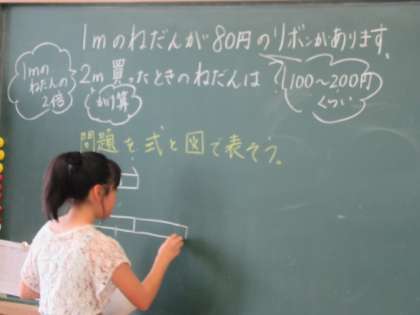 1mのねだんが80円のリボンがあります。
2m買ったときのねだんは?
1mのねだんの2倍
かけ算
100〜200円くらい
問題を式と図で表そう。